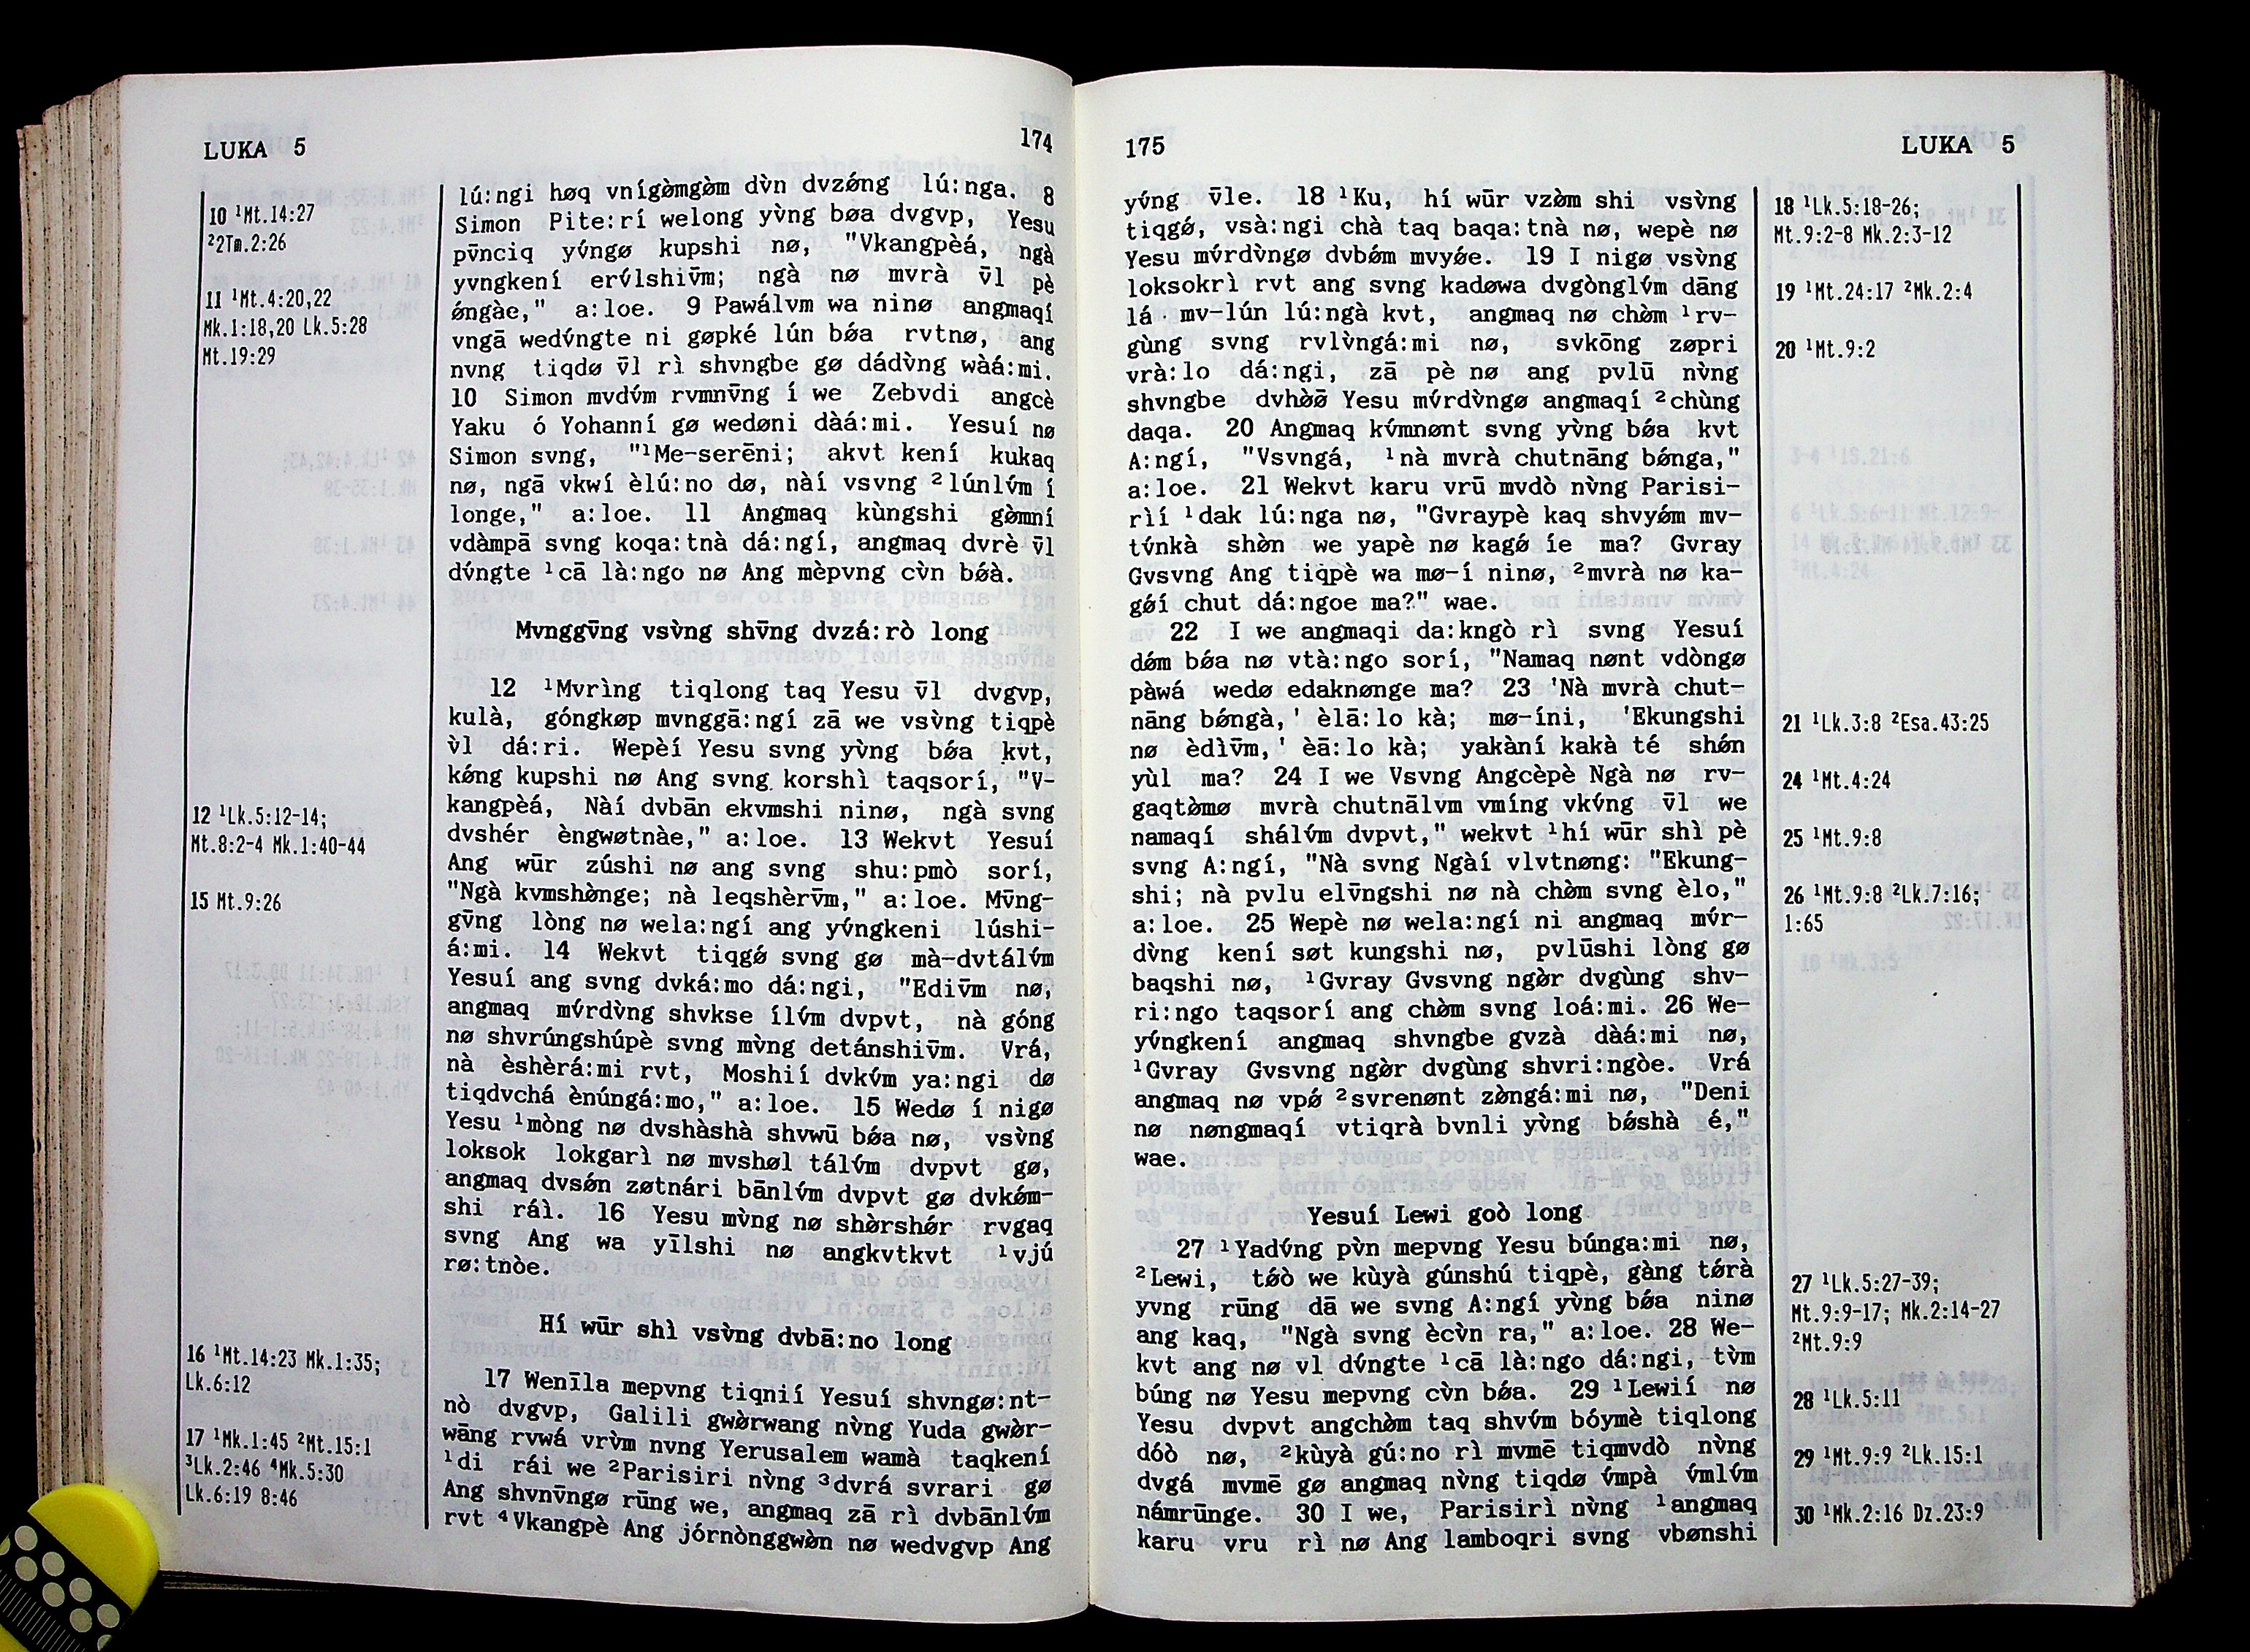 LUKA 5
174
10 ¹Mt.14:27
²2Tm.2:26
11 ¹Mt.4:20,22
Mk.1:18,20 Lk.5:28
Mt.19:29
12 ¹Lk.5:12-14;
Mt.8:2-4 Mk.1:40-44
15 Mt.9:26
16 ¹Mt.14:23 Mk.1:35;
Lk.6:12
17 ¹Mk.1:45 ²Mt.15:1
³Lk.2:46 ⁴Mk.5:30
Lk.6:19 8:46
lú:ngi høq vnígø̀mgø̀m dv̀n dvzǿng lú:nga. 8
Simon Pite:rí welong yv̀ng bøa dvgvp, Yesu
pv̄nciq yv́ngø kupshi nø, "Vkangpèá, ngà
yvngkení erv́lshiv̄m; ngà nø mvrà v̄l pè
ǿngàe," a:loe. 9 Pawálvm wa ninø angmaqí
vngā wedv́ngte ni gøpké lún bǿa rvtnø, ang
nvng tiqdø v̄l rì shvngbe gø dádv̀ng wàá:mi.
10 Simon mvdv́m rvmnv̄ng í we Zebvdi angcè
Yaku ó Yohanní gø wedøni dàá:mi. Yesuí nø
Simon svng, "¹Me-serēni; akvt kení kukaq
nø, ngā vkwí èlú:no dø, nàí vsvng ²lúnlv́m í
longe," a:loe. 11 Angmaq kùngshi gø̀mní
vdàmpā svng koqa:tnà dá:ngí, angmaq dvrè v̄l
dv́ngte ¹cā là:ngo nø Ang mèpvng cv̀n bǿà.
Mvnggv̄ng vsv̀ng shv̄ng dvzá:rò long
12 ¹Mvrìng tiqlong taq Yesu v̄l dvgvp,
kulà, góngkøp mvnggā:ngí zā we vsv̀ng tiqpè
v̀l dá:ri. Wepèí Yesu svng yv̀ng bǿa kvt,
kǿng kupshi nø Ang svng korshì taqsorí, "V-
kangpèá, Nàí dvbān ekvmshi ninø, ngà svng
dvshér èngwøtnàe," a:loe. 13 Wekvt Yesuí
Ang wūr zúshi nø ang svng shu:pmò sorí,
"Ngà kvmshø̀nge; nà leqshèrv̄m," a:loe. Mv̄ng-
gv̄ng lòng nø wela:ngí ang yv́ngkeni lúshi-
á:mi. 14 Wekvt tiqgǿ svng gø mà-dvtálv́m
Yesuí ang svng dvká:mo dá:ngi, "Ediv̄m nø,
angmaq mv́rdv̀ng shvkse ílv́m dvpvt, nà góng
nø shvrúngshúpè svng mv̀ng detánshiv̄m. Vrá,
nà èshèrá:mi rvt, Moshií dvkv́m ya:ngi dø
tiqdvchá ènúngá:mo," a:loe. 15 Wedø í nigø
Yesu ¹mòng nø dvshàshà shvwū bǿa nø, vsv̀ng
loksok lokgarì nø mvshøl tálv́m dvpvt gø,
angmaq dvsǿn zøtnári bānlv́m dvpvt gø dvkǿm-
shi ráì. 16 Yesu mv̀ng nø shø̀rshǿr rvgaq
svng Ang wa yīlshi nø angkvtkvt ¹vjú
rø:tnòe.
Hí wūr shì vsv̀ng dvbā:no long
17 Wenīla mepvng tiqnií Yesuí shvngø:nt-
nò dvgvp, Galili gwø̀rwang nv̀ng Yuda gwø̀r-
wāng rvwá vrv̀m nvng Yerusalem wamà taqkení
¹di rái we ²Parisiri nv̀ng ³dvrá svrari gø
Ang shvnv̄ngø rūng we, angmaq zā rì dvbānlv́m
rvt ⁴Vkangpè Ang jórnònggwø̀n nø wedvgvp Ang
175
LUKA 5
yv́ng v̄le. 18 ¹Ku, hí wūr vzø̀m shi vsv̀ng
tiqgǿ, vsà:ngi chà taq baqa:tnà nø, wepè nø
Yesu mv́rdv̀ngø dvbǿm mvyǿe. 19 I nigø vsv̀ng
loksokrì rvt ang svng kadøwa dvgònglv́m dāng
lá mv-lún lú:ngà kvt, angmaq nø chø̀m ¹rv-
gùng svng rvlv̀ngá:mi nø, svkōng zøpri
vrà:lo dá:ngi, zā pè nø ang pvlū nv̀ng
shvngbe dvhø̀ø̄ Yesu mv́rdv̀ngø angmaqí ²chùng
daqa. 20 Angmaq kv́mnønt svng yv̀ng bǿa kvt
A:ngí, "Vsvngá, ¹nà mvrà chutnāng bǿnga,"
a:loe. 21 Wekvt karu vrū mvdò nv̀ng Parisi-
rìí ¹dak lú:nga nø, "Gvraypè kaq shvyǿm mv-
tv́nkà shø̀n we yapè nø kagǿ íe ma? Gvray
Gvsvng Ang tiqpè wa mø-í ninø, ²mvrà nø ka-
gǿí chut dá:ngoe ma?" wae.
22 I we angmaqi da:kngò rì svng Yesuí
dǿm bǿa nø vtà:ngo sorí, "Namaq nønt vdòngø
pàwá wedø edaknønge ma? 23 'Nà mvrà chut-
nāng bǿngà,' èlā:lo kà; mø-íni, 'Ekungshi
nø èdìv̄m,' èā:lo kà; yakàní kakà té shǿn
yùl ma? 24 I we Vsvng Angcèpè Ngà nø rv-
gaqtø̀mø mvrà chutnālvm vmíng vkv́ng v̄l we
namaqí shálv́m dvpvt," wekvt ¹hí wūr shì pè
svng A:ngí, "Nà svng Ngàí vlvtnøng: "Ekung-
shi; nà pvlu elv̄ngshi nø nà chø̀m svng èlo,"
a:loe. 25 Wepè nø wela:ngí ni angmaq mv́r-
dv̀ng kení søt kungshi nø, pvlūshi lòng gø
baqshi nø, ¹Gvray Gvsvng ngø̀r dvgùng shv-
ri:ngo taqsorí ang chø̀m svng loá:mi. 26 We-
yv́ngkení angmaq shvngbe gvzà dàá:mi nø,
¹Gvray Gvsvng ngø̀r dvgùng shvri:ngòe. Vrá
angmaq nø vpǿ ²svrenønt zø̀ngá:mi nø, "Deni
nø nøngmaqí vtiqrà bvnli yv̀ng bǿshà é,"
wae.
Yesuí Lewi goò long
27 ¹Yadv́ng pv̀n mepvng Yesu búnga:mi nø,
²Lewi, tǿò we kùyà gúnshú tiqpè, gàng tǿrà
yvng rūng dā we svng A:ngí yv̀ng bǿa ninø
ang kaq, "Ngà svng ècv̀n ra," a:loe. 28 We-
kvt ang nø vl dv́ngte ¹cā là:ngo dá:ngi, tv̀m
búng nø Yesu mepvng cv̀n bǿa. 29 ¹Lewií nø
Yesu dvpvt angchø̀m taq shvv́m bóymè tiqlong
dóò nø, ²kùyà gú:no rì mvmē tiqmvdò nv̀ng
dvgá mvmē gø angmaq nv̀ng tiqdø v́mpà v́mlv́m
námrūnge. 30 I we, Parisirì nv̀ng ¹angmaq
karu vru rì nø Ang lamboqri svng vbønshi
18 ¹Lk.5:18-26;
Mt.9:2-8 Mk.2:3-12
19 ¹Mt.24:17 ²Mk.2:4
20 ¹Mt.9:2
21 ¹Lk.3:8 ²Esa.43:25
24 ¹Mt.4:24
25 ¹Mt.9:8
26 ¹Mt.9:8 ²Lk.7:16;
1:65
27 ¹Lk.5:27-39;
Mt.9:9-17; Mk.2:14-27
²Mt.9:9
28 ¹Lk.5:11
29 ¹Mt.9:9 ²Lk.15:1
30 ¹Mk.2:16 Dz.23:9